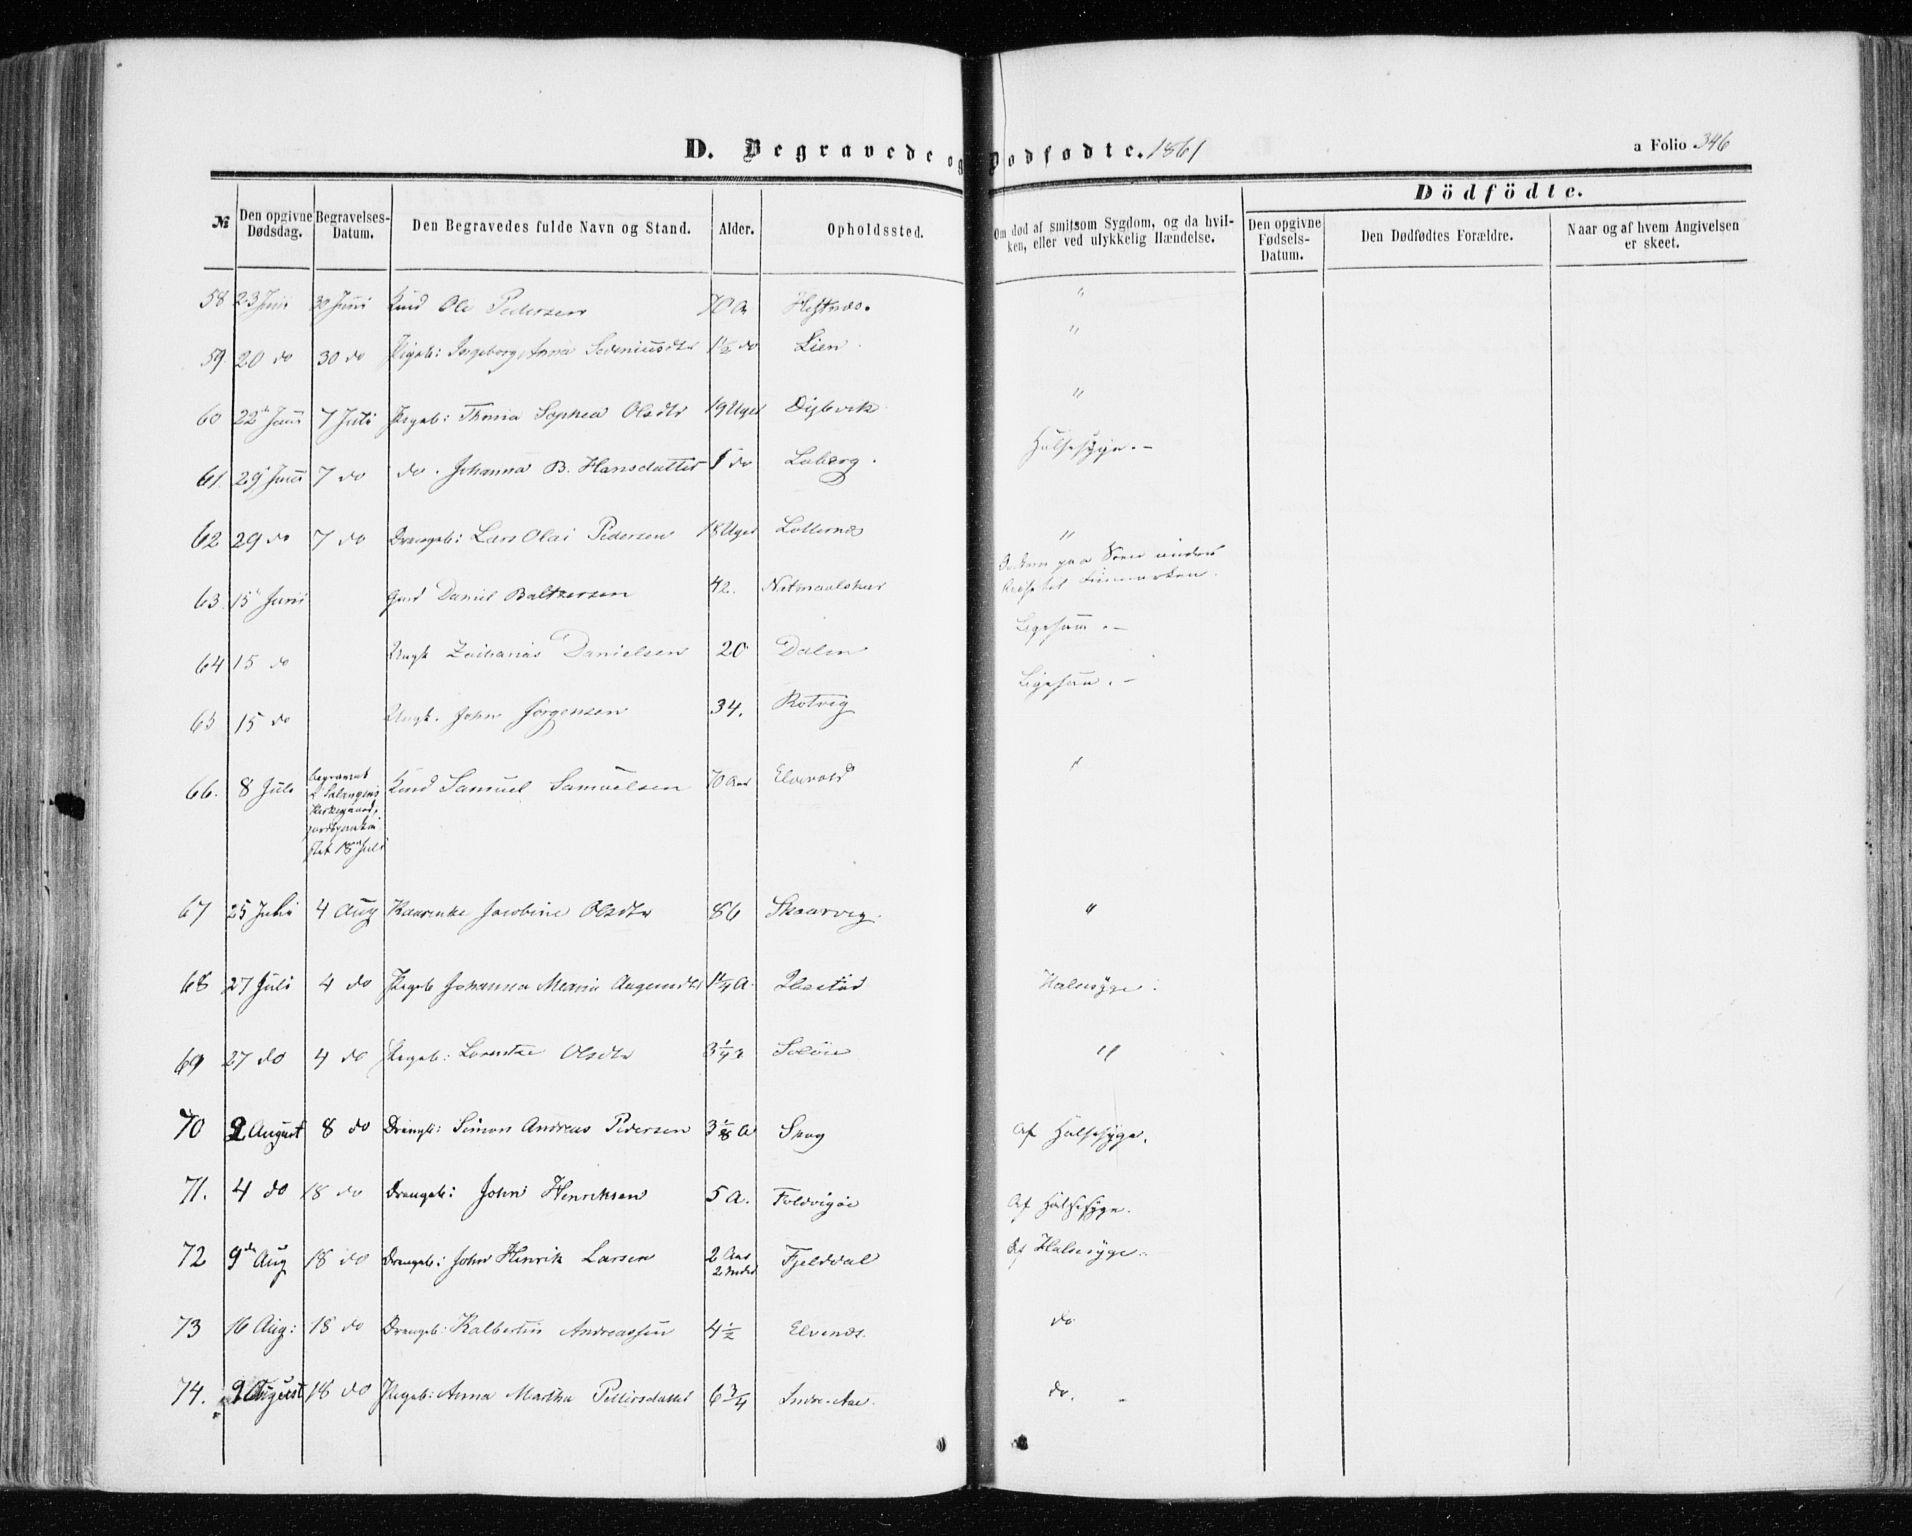 D. Begravede og Dødfødte. 1861
a Folio 346
Dödfödte.
№ Den opgivne Dødsdag. Begravelses-Datum. Den Begravedes fulde Navn og Stand. Alder. Opholdssted. Om død af smitsom Sygdom, og da hvilken, eller ved ulykkelig Hændelse. Den opgivne Fødsels-Datum. Den Dødfødtes Forældre. Naar og af hvem Angivelsen er skeet.
58 23 Juni 30 Juni Kind Ole Pedersen 70 A Heftnæs. "
59. 20 do 30 do Pigeb: Ingeborg Anna Sedeniusdtr 1½ do Lien. "
60 22d Juni 7 Juli Pigeb: Sophea Olsdtr 19 Uger Digbvik "
61. 29 Juni 7 do do. Johanna B. Hansdatter 1 do Laberg. Halsesyge. -
62 29 do 7 do Drengeb: Lars Olai Pedersen 18 Uger "
63. 15d Juni Gmd Daniel Baltzersen 42. paa Søen under Reise til Finmarken.
64 15 do Ungk Zacharias Danielsen 20 Dalen Ligesaa. -
65 15 do Ungk. John Jørgensen 34. Rotvig Ligesaa. -
66. 8 Juli Begravet i Salangens Kirkegaard, jordspaakastet 18d Juli Kind Samuel Samuelsen 70 Aar Elvevold "
67 25 Juli 4 Aug Jacobine Olsdtr 86 Skaarvig. "
68 27 Juli 4 do Pigeb Johanna Maria 1¼ A. Ibestad Halssyge.
69 27 do 4 do Pigeb: Lorentze Olsdtr 3¼ "
70 2 August 8 do Drengb: Simon Andreas Pedersen 3 ⅛ A Skog Af Halsesyge.
71. 4 do 18 do Drengeb: John Henriksen 5 A. Foldvigøe Af Halsesyge.
72 9de Aug 18 do Drengeb: John Henrik Larsen 2 Aar 2 Mdr Fjeldval Af Halssyge.
73 16 Aug: 18 do Drengeb: Kalbertin Andreassen 4½ Elvenes. do
74. 9 August 18 do Pigeb: Anna Martha Pettersdatter 6¾ Indre-Aae. do. -